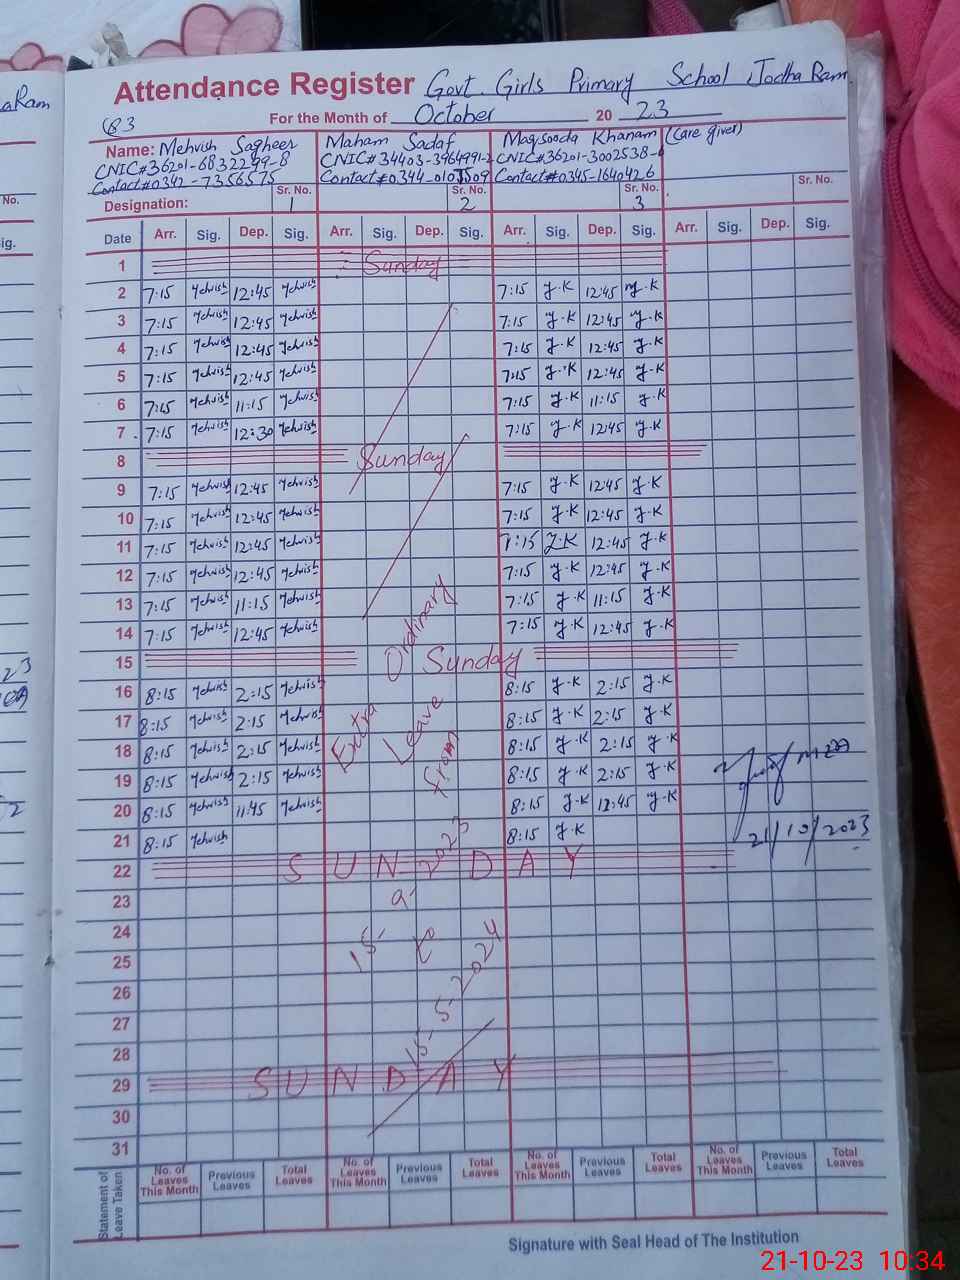 Attendance Register Govt. Girls Primary School Jodha Ram
For the Month of October 20 23
Name: Mehvish Sagheer Maham Sadaf Maqsooda Khanam (Care giver)
CNIC#36201-6832299-8 CNIC# 34403-3964991-2 CNIC#36201-3002538-
Contact#0342-7356575 Contact#0344-010 509 Contact#0345-1640426
Designation: Sr. No. 1 Sr. No. 2 Sr. No. 3 Sr. No.
Date Arr. Sig. Dep. Sig. Arr. Sig. Dep. Sig. Arr. Sig. Dep. Sig. Arr. Sig. Dep. Sig.
1 Sunday
2 7:15 Mehvish 12:45 Mehvish 7:15 M.K 12:45 M.K
3 7:15 Mehvish 12:45 Mehvish 7:15 M.K 12:45 M.K
4 7:15 Mehvish 12:45 Mehvish 7:15 M.K 12:45 M.K
5 7:15 Mehvish 12:45 Mehvish 7:15 M.K 12:45 M.K
6 7:15 Mehvish 11:15 Mehvish 7:15 M.K 11:15 M.K
7 7:15 Mehvish 12:30 Mehvish 7:15 M.K 12:45 M.K
8 Sunday
9 7:15 Mehvish 12:45 Mehvish 7:15 M.K 12:45 M.K
10 7:15 Mehvish 12:45 Mehvish 7:15 M.K 12:45 M.K
11 7:15 Mehvish 12:45 Mehvish 7:15 M.K 12:45 M.K
12 7:15 Mehvish 12:45 Mehvish 7:15 M.K 12:45 M.K
13 7:15 Mehvish 11:15 Mehvish 7:15 M.K 11:15 M.K
14 7:15 Mehvish 12:45 Mehvish 7:15 M.K 12:45 M.K
15 Sunday
16 8:15 Mehvish 2:15 Mehvish 8:15 M.K 2:15 M.K
17 8:15 Mehvish 2:15 Mehvish 8:15 M.K 2:15 M.K
18 8:15 Mehvish 2:15 Mehvish 8:15 M.K 2:15 M.K
19 8:15 Mehvish 2:15 Mehvish 8:15 M.K 2:15 M.K
20 8:15 Mehvish 11:45 Mehvish 8:15 M.K 12:45 M.K
21 8:15 Mehvish 8:15 M.K
21/10/2023
22 SUNDAY
23
24
25
26
27
28
29 SUNDAY
30
31
Extra Ordinary Leave from
15-9-2023
to
15-5-2024
Statement of Leave Taken
No. of Leaves This Month Previous Leaves Total Leaves No. of Leaves This Month Previous Leaves Total Leaves No. of Leaves This Month Previous Leaves Total Leaves No. of Leaves This Month Previous Leaves Total Leaves
Signature with Seal Head of The Institution
21-10-23 10:34